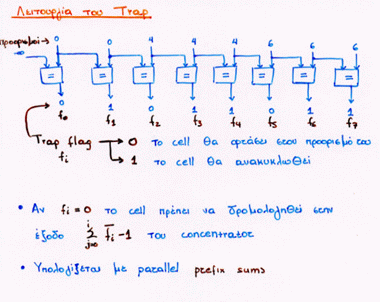 Λειτουργία του Trap
προορισμοί → 0 0 4 4 4 6 6 6
-∞
= = = = = = = =
0 1 0 1 1 0 1 1
f₀ f₁ f₂ f₃ f₄ f₅ f₆ f₇
Trap flag → 0 Το cell θα φτάσει στον προορισμό του
fᵢ → 1 το cell θα ανακυκλωθεί
• Αν fᵢ = 0 το cell πρέπει να δρομολογηθεί στην
έξοδο Σ f̅ᵢ - 1 του concentrator
i
j=0
• Υπολογίζεται με parallel prefix sums